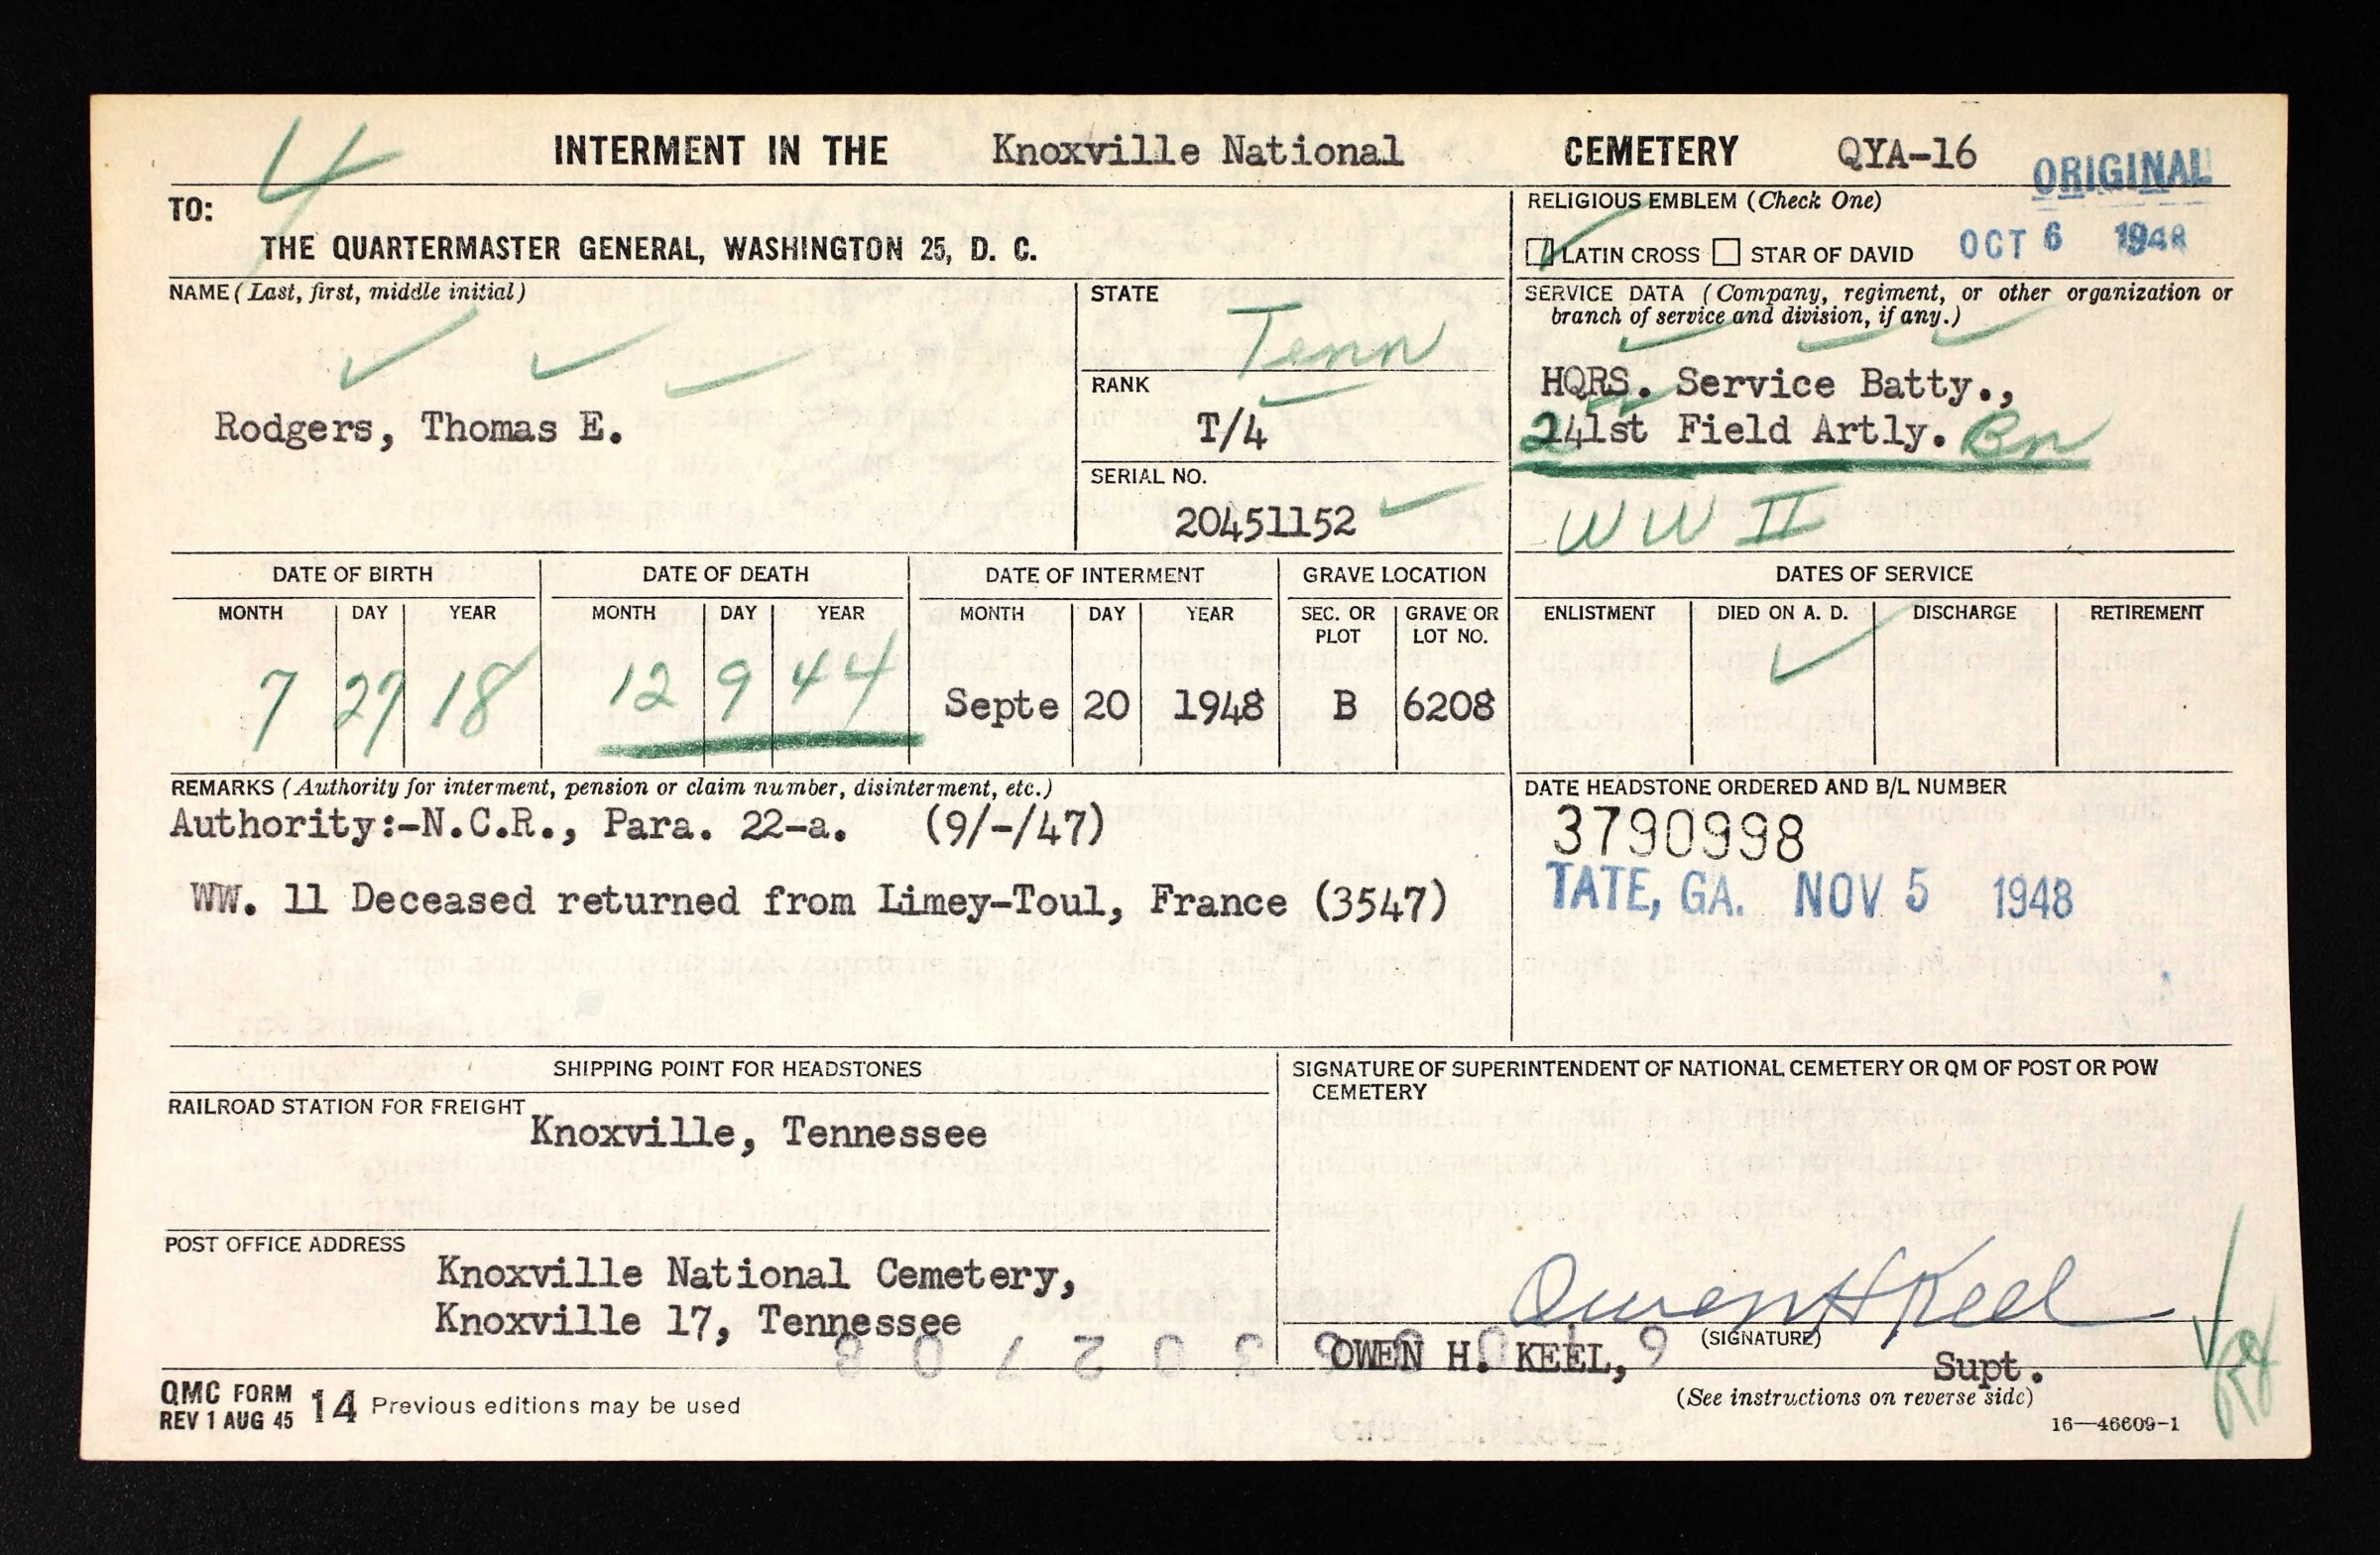 4
INTERMENT IN THE Knoxville National CEMETERY QYA-16
ORIGINAL
TO:
THE QUARTERMASTER GENERAL, WASHINGTON 25, D. C.
RELIGIOUS EMBLEM (Check One)
LATIN CROSS STAR OF DAVID
OCT 6 1948
NAME (Last, first, middle initial)
Rodgers, Thomas E.
STATE
Tenn
RANK
T/4
SERIAL NO.
20451152
SERVICE DATA (Company, regiment, or other organization or
branch of service and division, if any.)
HQRS. Service Batty.,
241st Field Artly. Bn
WW II
DATE OF BIRTH DATE OF DEATH DATE OF INTERMENT GRAVE LOCATION DATES OF SERVICE
MONTH DAY YEAR MONTH DAY YEAR MONTH DAY YEAR SEC. OR PLOT GRAVE OR LOT NO. ENLISTMENT DIED ON A. D. DISCHARGE RETIREMENT
7 27 18 12 9 44 Septe 20 1948 B 6208
REMARKS (Authority for interment, pension or claim number, disinterment, etc.)
Authority:-N.C.R., Para. 22-a. (9/-/47)
WW. 11 Deceased returned from Limey-Toul, France (3547)
DATE HEADSTONE ORDERED AND B/L NUMBER
3790998
TATE, GA. NOV 5 1948
SHIPPING POINT FOR HEADSTONES
RAILROAD STATION FOR FREIGHT
Knoxville, Tennessee
POST OFFICE ADDRESS
Knoxville National Cemetery,
Knoxville 17, Tennessee
SIGNATURE OF SUPERINTENDENT OF NATIONAL CEMETERY OR QM OF POST OR POW
CEMETERY
Owen H Keel
(SIGNATURE)
OWEN H. KEEL, Supt.
(See instructions on reverse side)
QMC FORM 14 Previous editions may be used
REV 1 AUG 45
16—46609-1